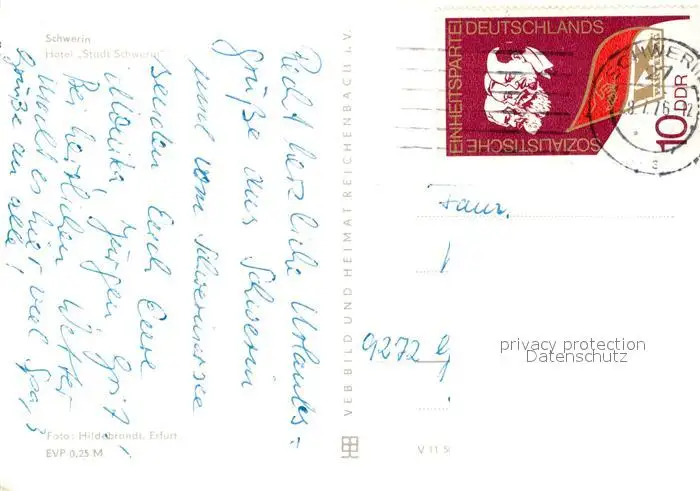 Schwerin
Hotel „Stadt Schwerin“
Recht herzliche Urlaubs=
grüße aus Schwerin
und vom Schwerinersee
senden Euch Eure
Monika, Jürgen
Bei herrlichem Wetter
macht es hier viel Spaß
Grüße an alle!
Foto: Hildebrandt, Erfurt
EVP 0,25 M
VEB BILD UND HEIMAT REICHENBACH i. V.
V 11 50
SOZIALISTISCHE
EINHEITSPARTEI DEUTSCHLANDS
10 DDR
SCHWERIN
27
Fam.
9272 G
privacy protection
Datenschutz